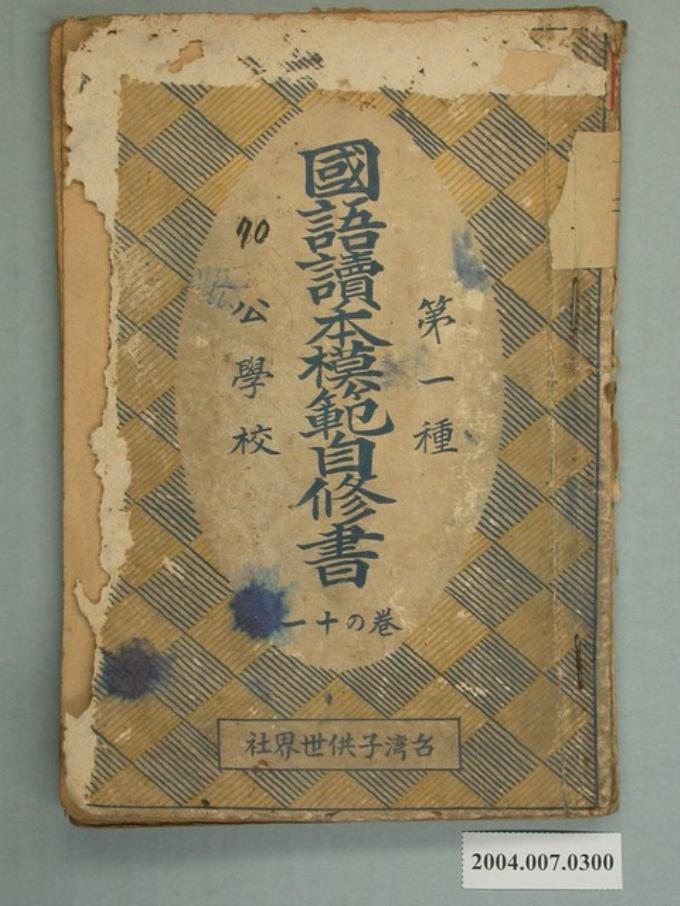 第一種
國語讀本模範自修書
70
公學校
巻の十一
台湾子供世界社
2004.007.0300